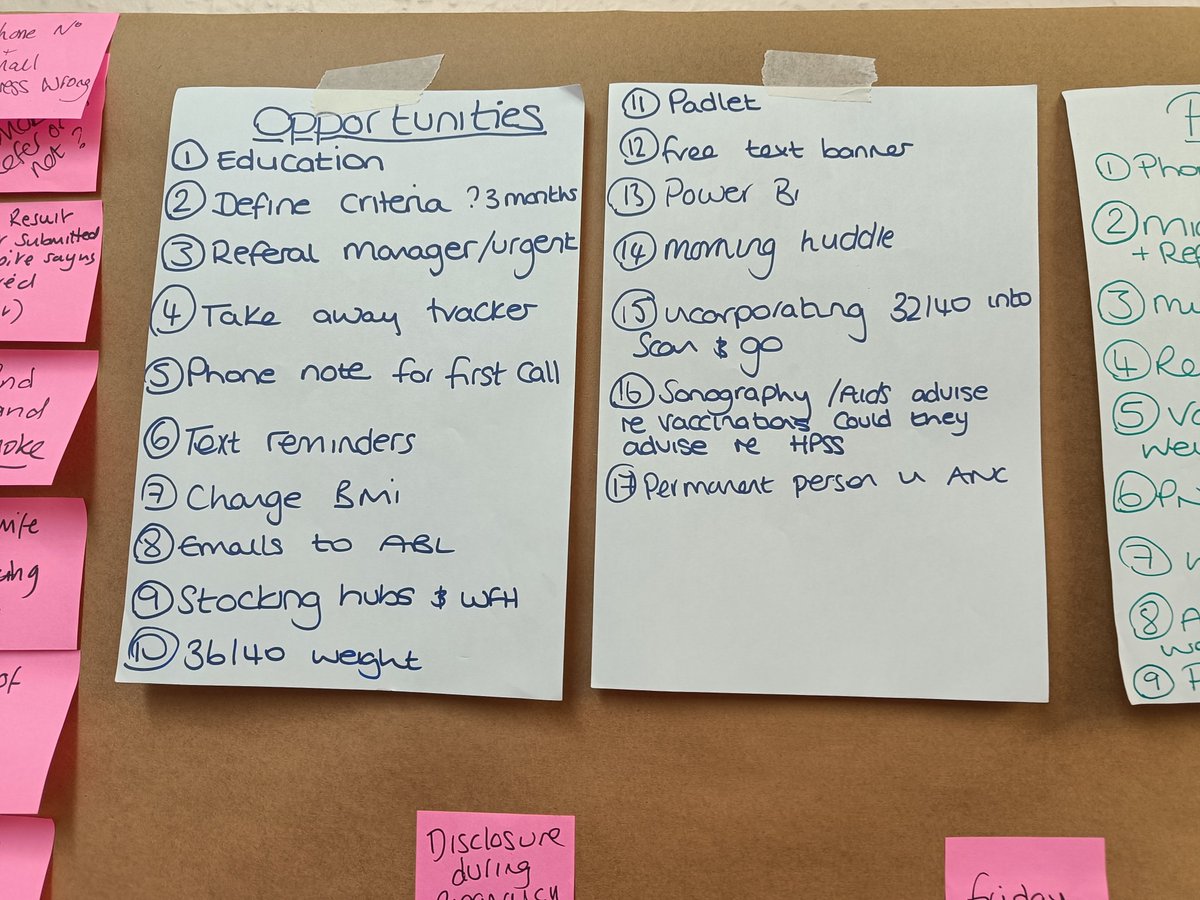 hone No
+
ress wrong
efer or
not?
Result
Submitted
Opportunities
① Education
② Define criteria ? 3 months
③ Referal manager/urgent
④ Take away tracker
⑤ Phone note for first call
⑥ Text reminders
⑦ Change BMI
⑧ Emails to ABL
⑨ Stocking hubs & WFH
⑩ 36/40 weight
⑪ Padlet
⑫ free text banner
⑬ Power BI
⑭ morning huddle
⑮ incorporating 32/40 into
Scan & go
⑯ Sonography /Aids advise
re vaccinations could they
advise re HPSS
⑰ Permanent person in ANC
① Pho
②
+ Ref
③
④ Re
⑤
⑥
⑦
⑧
⑨
Disclosure
during
friday